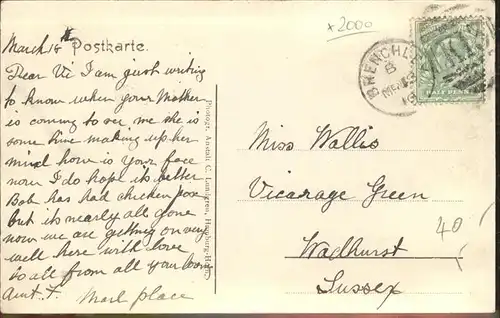 x 2000
March 18 Postkarte.
Dear Vi I am just writing
to know when your Mother
is coming to see me she is
some time making up her
mind how is your face
now I do hope its better
Bob has had chicken pox
but its nearly all gone
now we are getting on very
well here with love
to all from all your loving
Aunt. F. Marl place
Photogr. Anstalt C. Lundgren, Hamburg
BRENCHL
HALF PENN
Miss Wallis
Vicarage Green
Wadhurst
Sussex
40